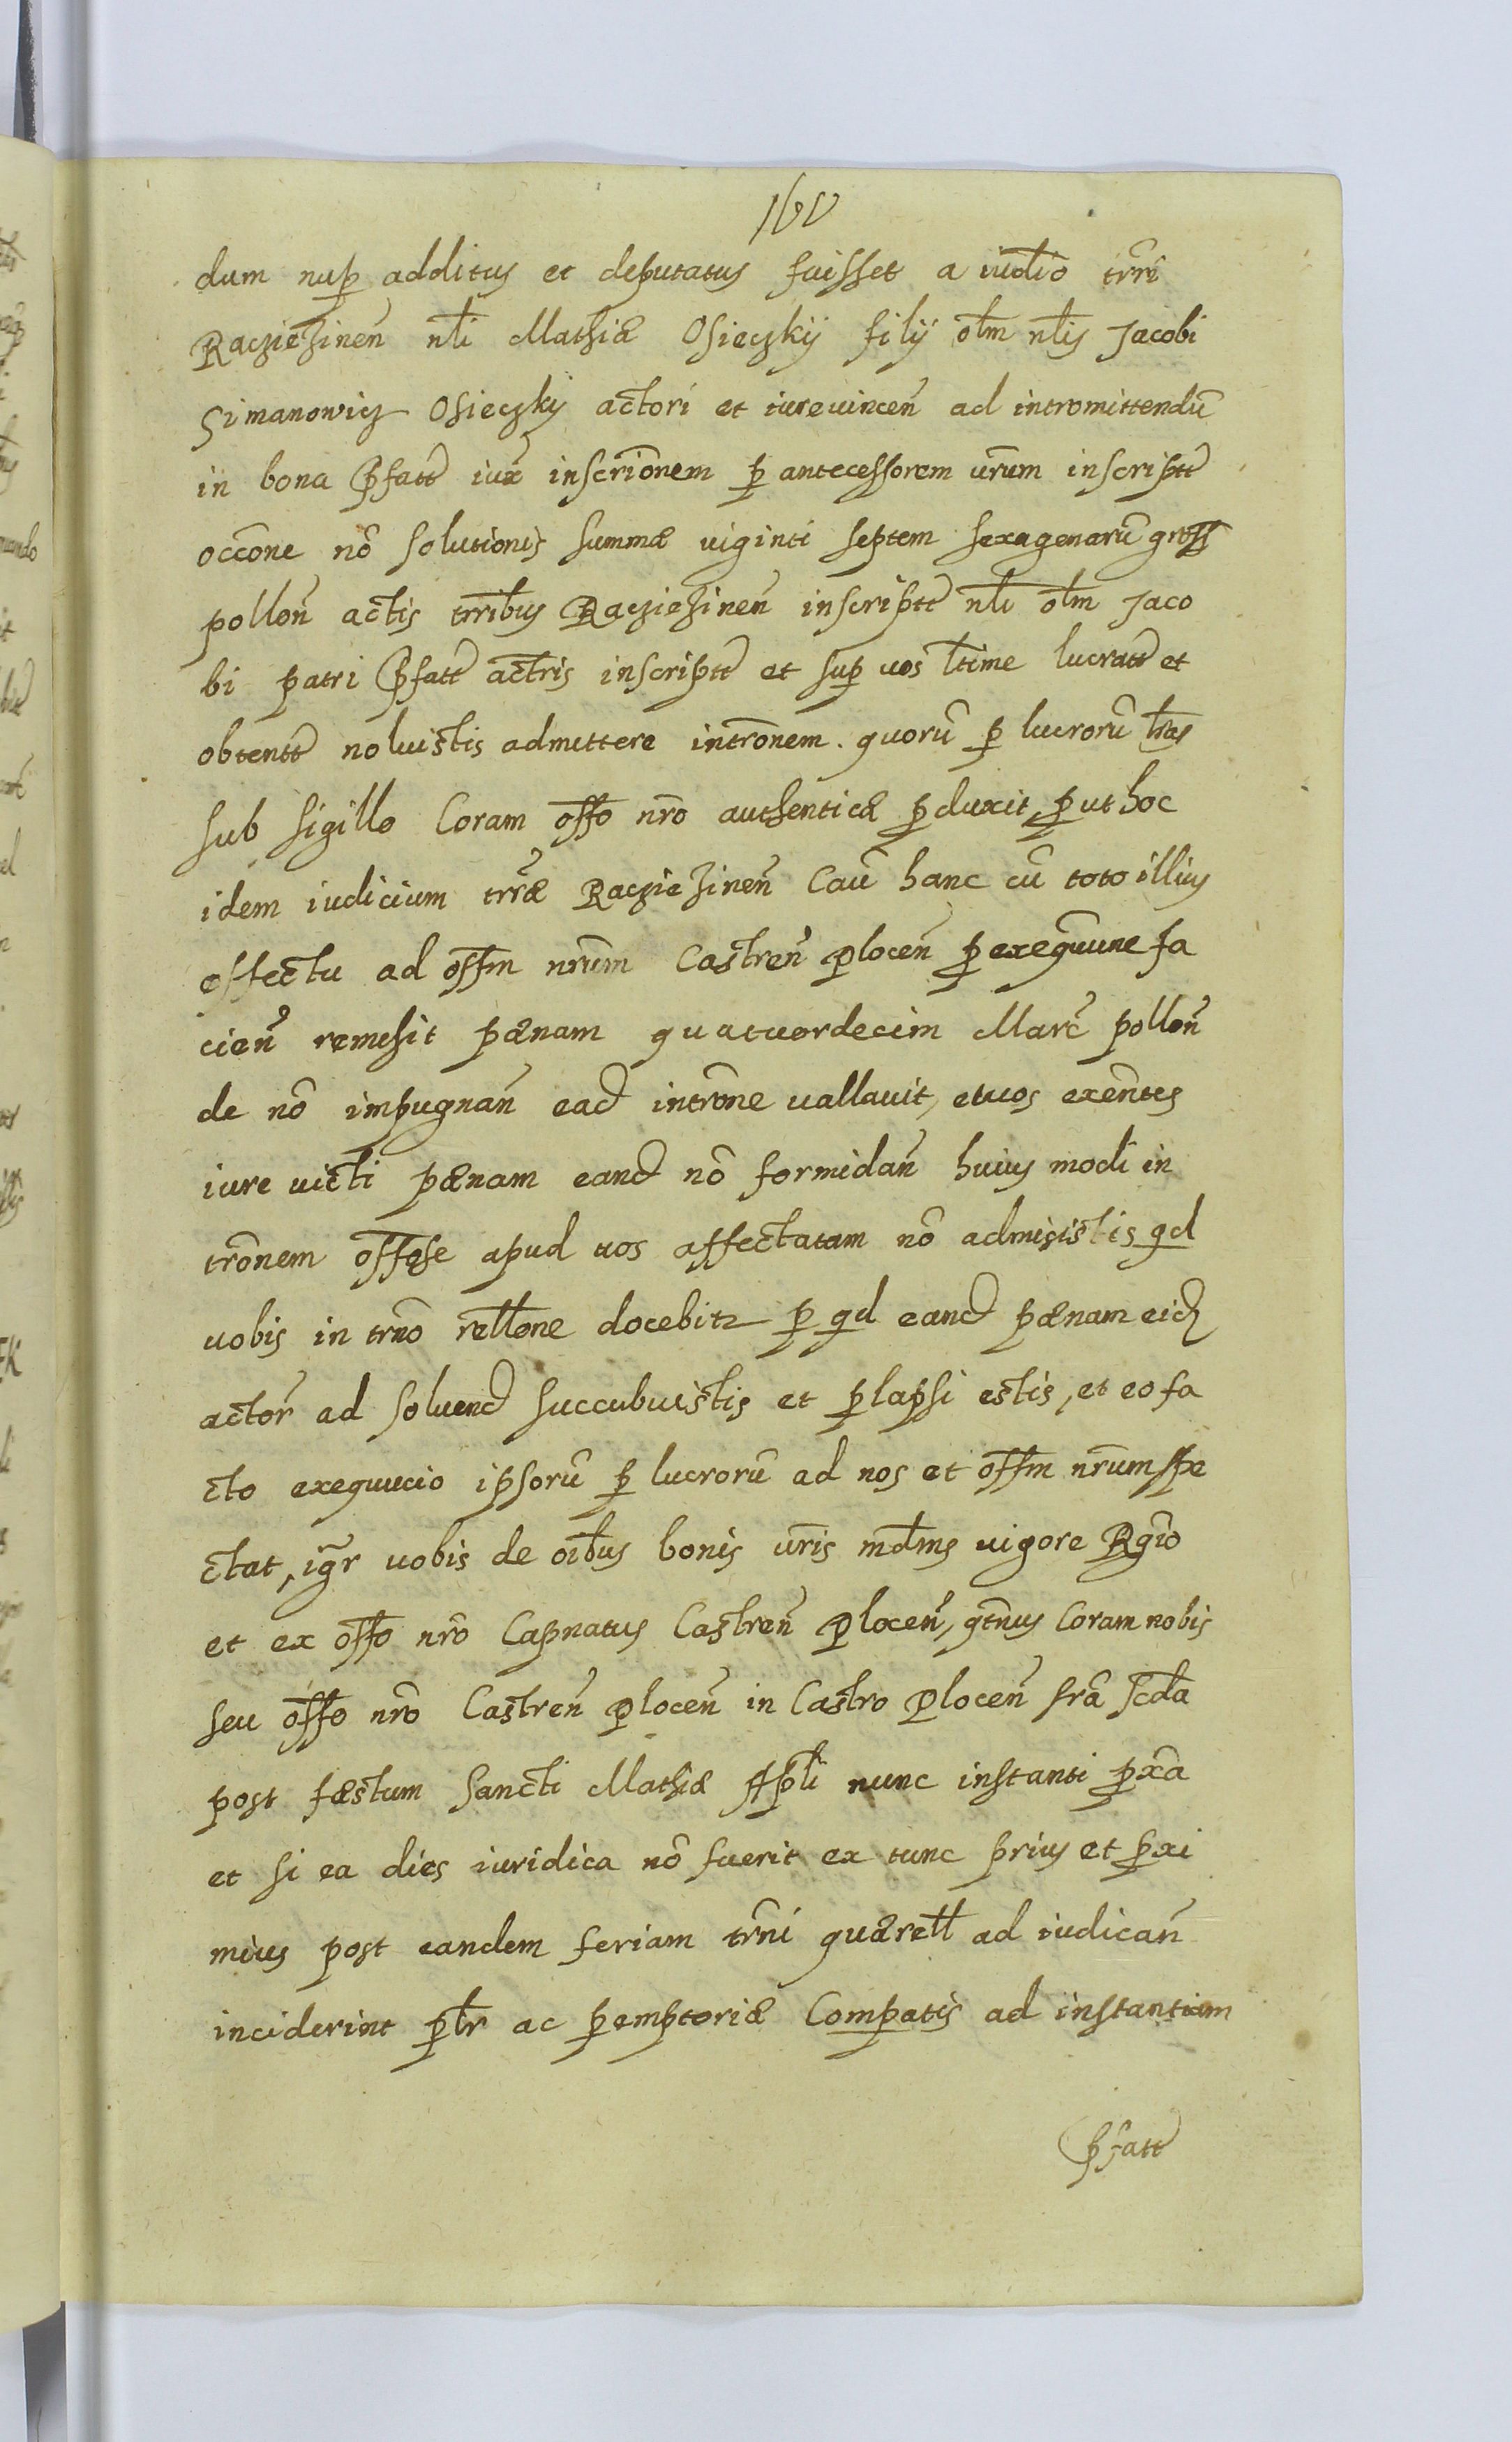 160
dum nup̲ additus et deputatus fuisset a iud̅io tr̅ri
Racziezinen̅ nl̅i Mathiæ Osieczkij filij ol̅m nl̅is Jacobi
Simanowicz Osieczky actori et iurevincen̅ ad intromittendū
in bona p̅fatt iux̅ inscri̅onem p̲ antecessorem vr̅um inscriptt
occ̅one nō solutionis summæ viginti septem sexagenarū gross
pollon̅ actis trrib̅us Racziezinen̅ inscriptt nl̅i ol̅m Jaco
bi patri p̅fatt actr̅is inscriptt et sup̲ vos l̅time lucratt et
obtentt noluistis admittere intr̅onem. quorū p̲ lucrorū l̅ras
sub sigillo Coram off̅o nr̅o authenticæ p̲duxit, p̲ut hoc
idem iudicium tr̅ræ Racziezinen̅ Cau̅ hanc cū toto illius
effectu ad off̅m nr̅um Castren̅ Plocen̅ p̲ exequ̅une fa
cien̅ remisit pænam quatuordecim Marc̅ pollon̅
de nō impugnan̅ ead intr̅one vallavit, et vos exen̅tes
iure victi pænam eand nō formidan̅ huius modi in
tr̅onem off̅ose apud vos affectatam nō admisistis qd
vobis in trn̅o rell̅one docebitr p̲ qd eand pænam eid
actor̅ ad solvend succubuistis et p̲lapsi estis, et eo fa
cto exequucio ipsorū p̲ lucrorū ad nos et off̅m nr̅um spe
ctat, ig̅r vobis de oib̅us bonis vr̅is md̅ms vigore Rgi̅o
et ex off̅o nr̅o Capnatus Castren̅ Plocen̅, qtn̅us Coram nobis
seu off̅o nr̅o Castren̅ Plocen̅ in Castro Plocen̅ fr̅a scd̅a
post fæstum Sancti Mathiæ Apl̅i nunc instanti p̲xa̅
et si ea dies iuridica nō fuerit ex tunc prius et p̲xi
mius post eandem feriam trn̅i quærell ad iudican̅
inciderint p̲tr̅ ac p̲emptoriæ Compatis ad instantiam
p̅fatt